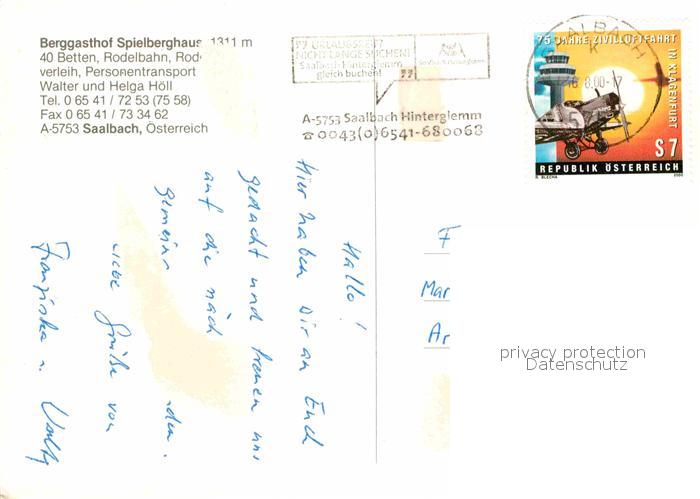 Berggasthof Spielberghaus 1311 m
40 Betten, Rodelbahn, Rod
verleih, Personentransport
Walter und Helga Höll
Tel. 0 65 41 / 72 53 (75 58)
Fax 0 65 41 / 73 34 62
A-5753 Saalbach, Österreich
URLAUBSREIF?
NICHT LANGE SUCHEN!
Saalbach Hinterglemm
gleich buchen!
A-5753 Saalbach Hinterglemm
☎0043(0)6541-680068
SAALBACH
18.8.00-17
75 JAHRE ZIVILLUFTFAHRT
IN KLAGENFURT
S 7
REPUBLIK ÖSTERREICH
H. BLECHA
2000
Hallo!
Hier haben wir an Euch
gedacht und freuen uns
auf die näch
gemein den.
Liebe Grüße von
Franziska u.
F
Mar
Ar
privacy protection
Datenschutz